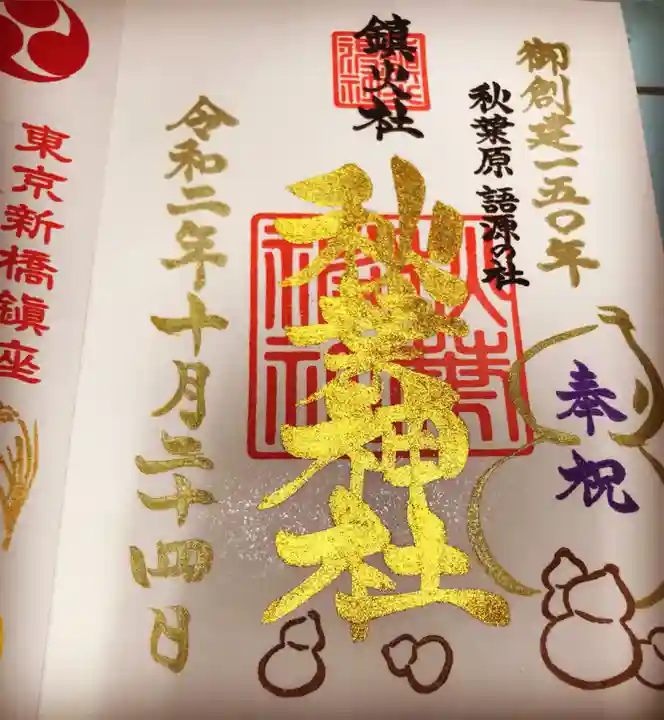 御創建一五〇年
奉祝
秋葉原語源の社
鎮火社
秋葉神社
令和二年十月二十四日
東京新橋鎮座